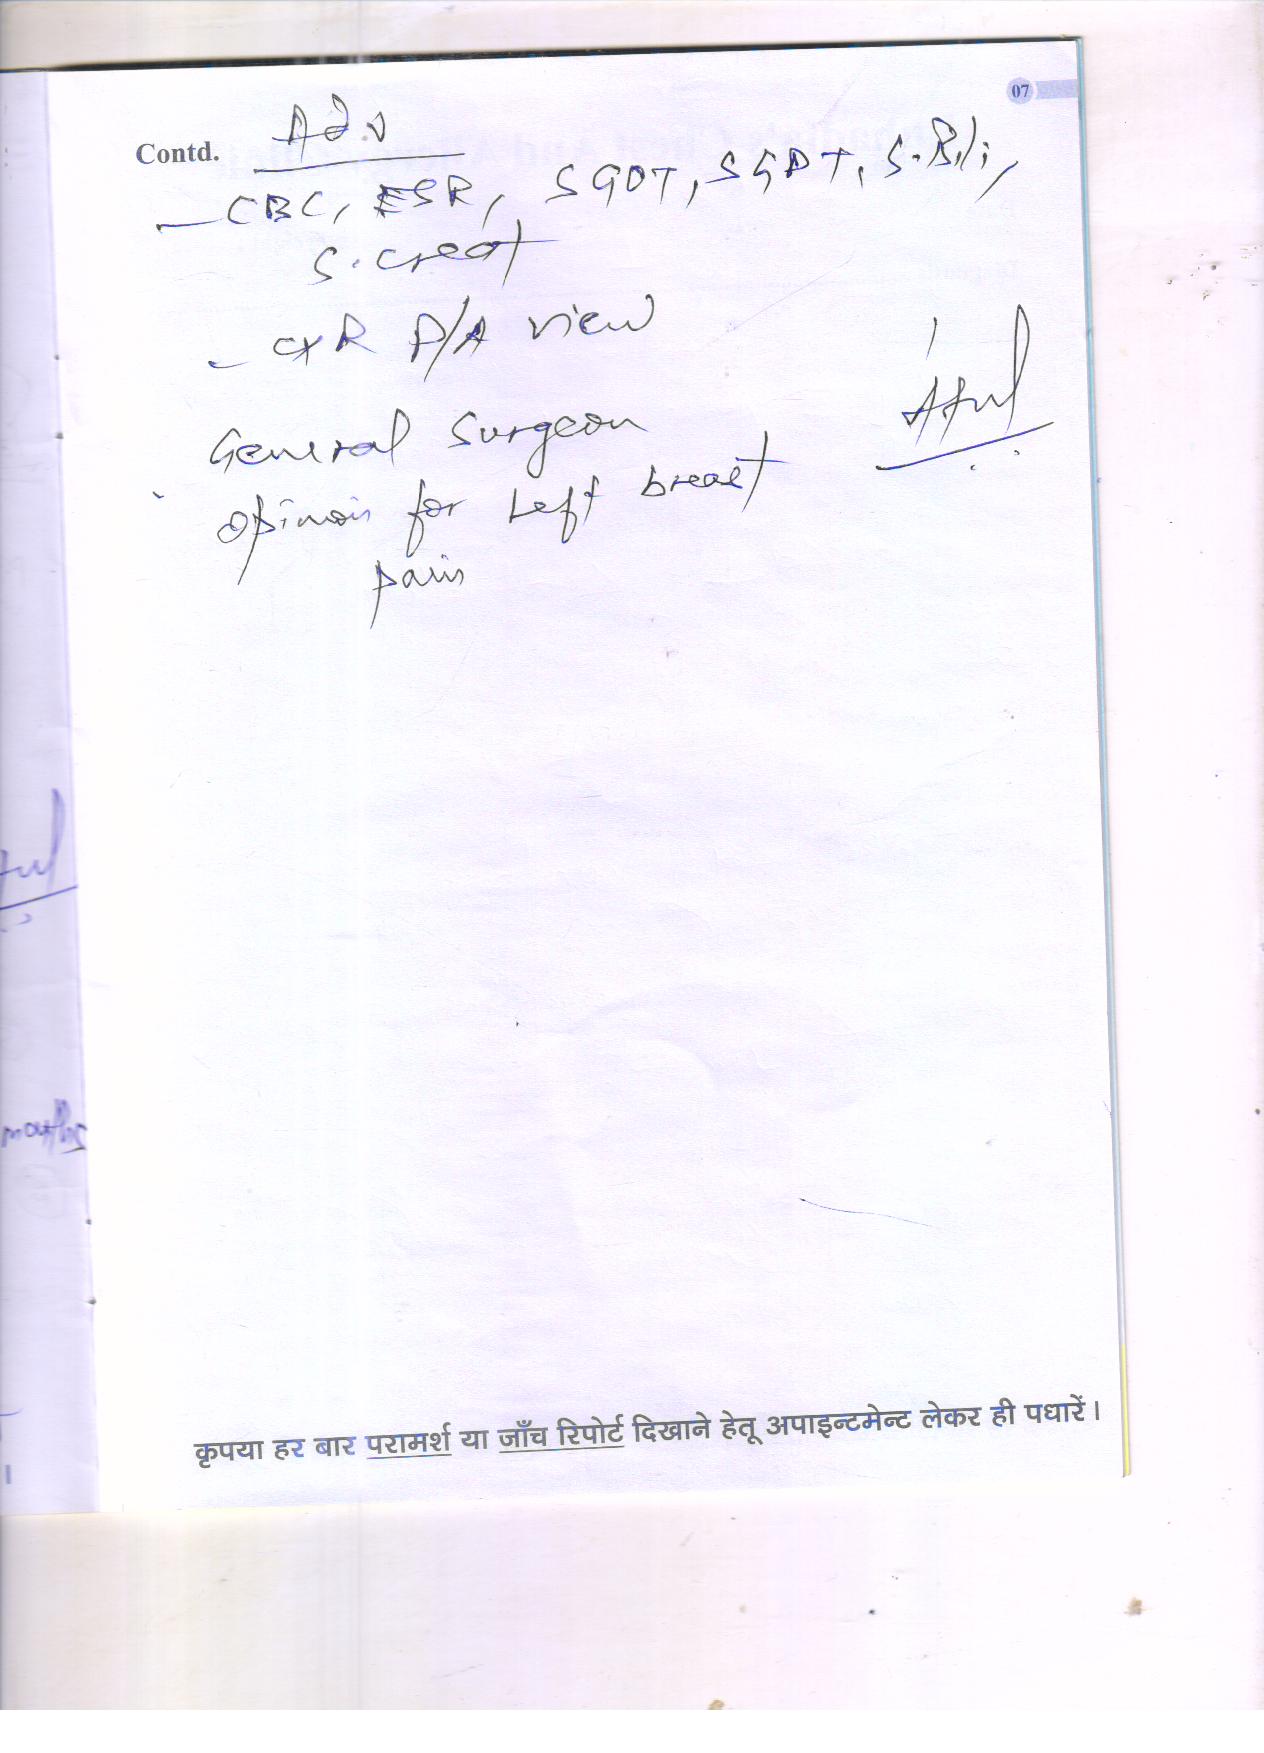 07
Contd. Adv
- CBC, ESR, SGOT, SGPT, S.Bili,
S. creat
- CXR P/A view
General Surgeon
opinion for Left breast
pain
months
कृपया हर बार परामर्श या जाँच रिपोर्ट दिखाने हेतू अपाइन्टमेन्ट लेकर ही पधारें।